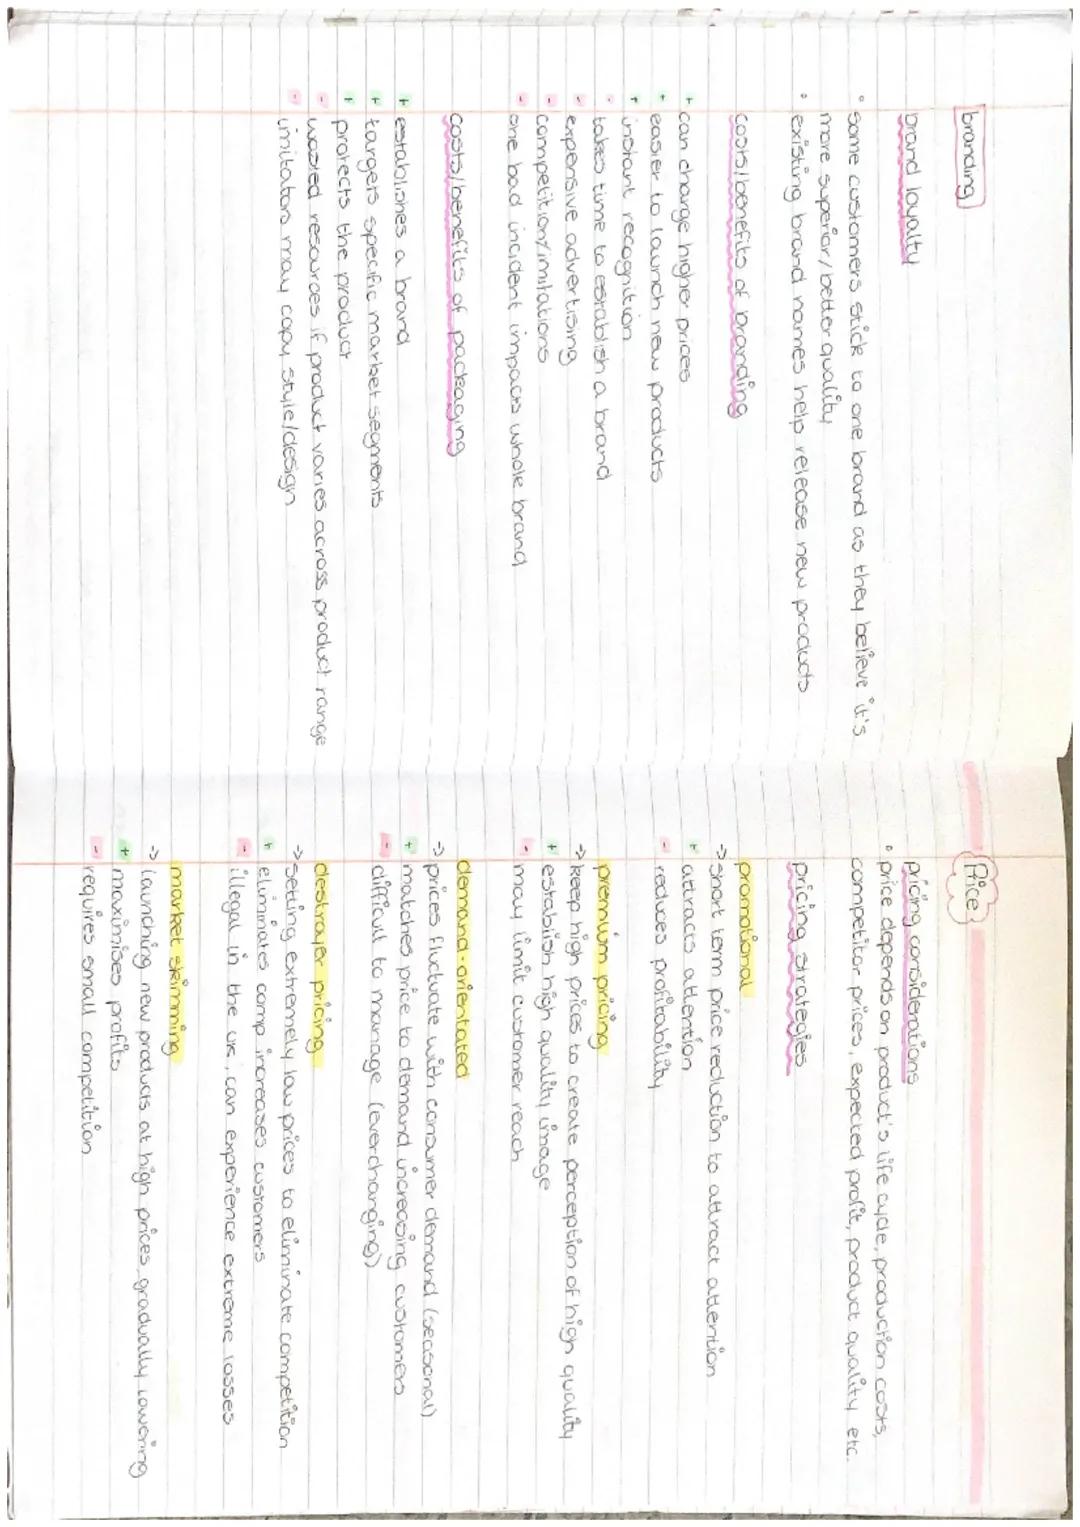 branding
brand loyalty
• some customers stick to one brand as they believe it's
more superior/better quality
• existing brand names help release new products
costs/benefits of branding
+ can charge higher prices
+ easier to launch new products
+ instant recognition
- takes time to establish a brand
- expensive advertising
- competition/imitations
- one bad incident impacts whole brand
costs/benefits of packaging
+ establishes a brand
+ targets specific market segments
+ protects the product
- wasted resources if product varies across product range
- imitators may copy style/design
Price
pricing considerations
• price depends on product's life cycle, production costs,
competitor prices, expected profit, product quality etc.
pricing strategies
promotional
-> short term price reduction to attract attention
+ attracts attention
- reduces profitability
premium pricing
-> keep high prices to create perception of high quality
+ establish high quality image
- may limit customer reach
demand-orientated
-> prices fluctuate with consumer demand (seasonal)
+ matches price to demand increasing customers
- difficult to manage (everchanging)
destroyer pricing
-> setting extremely low prices to eliminate competition
+ eliminates comp increases customers
- illegal in the UK, can experience extreme losses
market skimming
-> launching new products at high prices, gradually lowering
+ maximises profits
- requires small competition